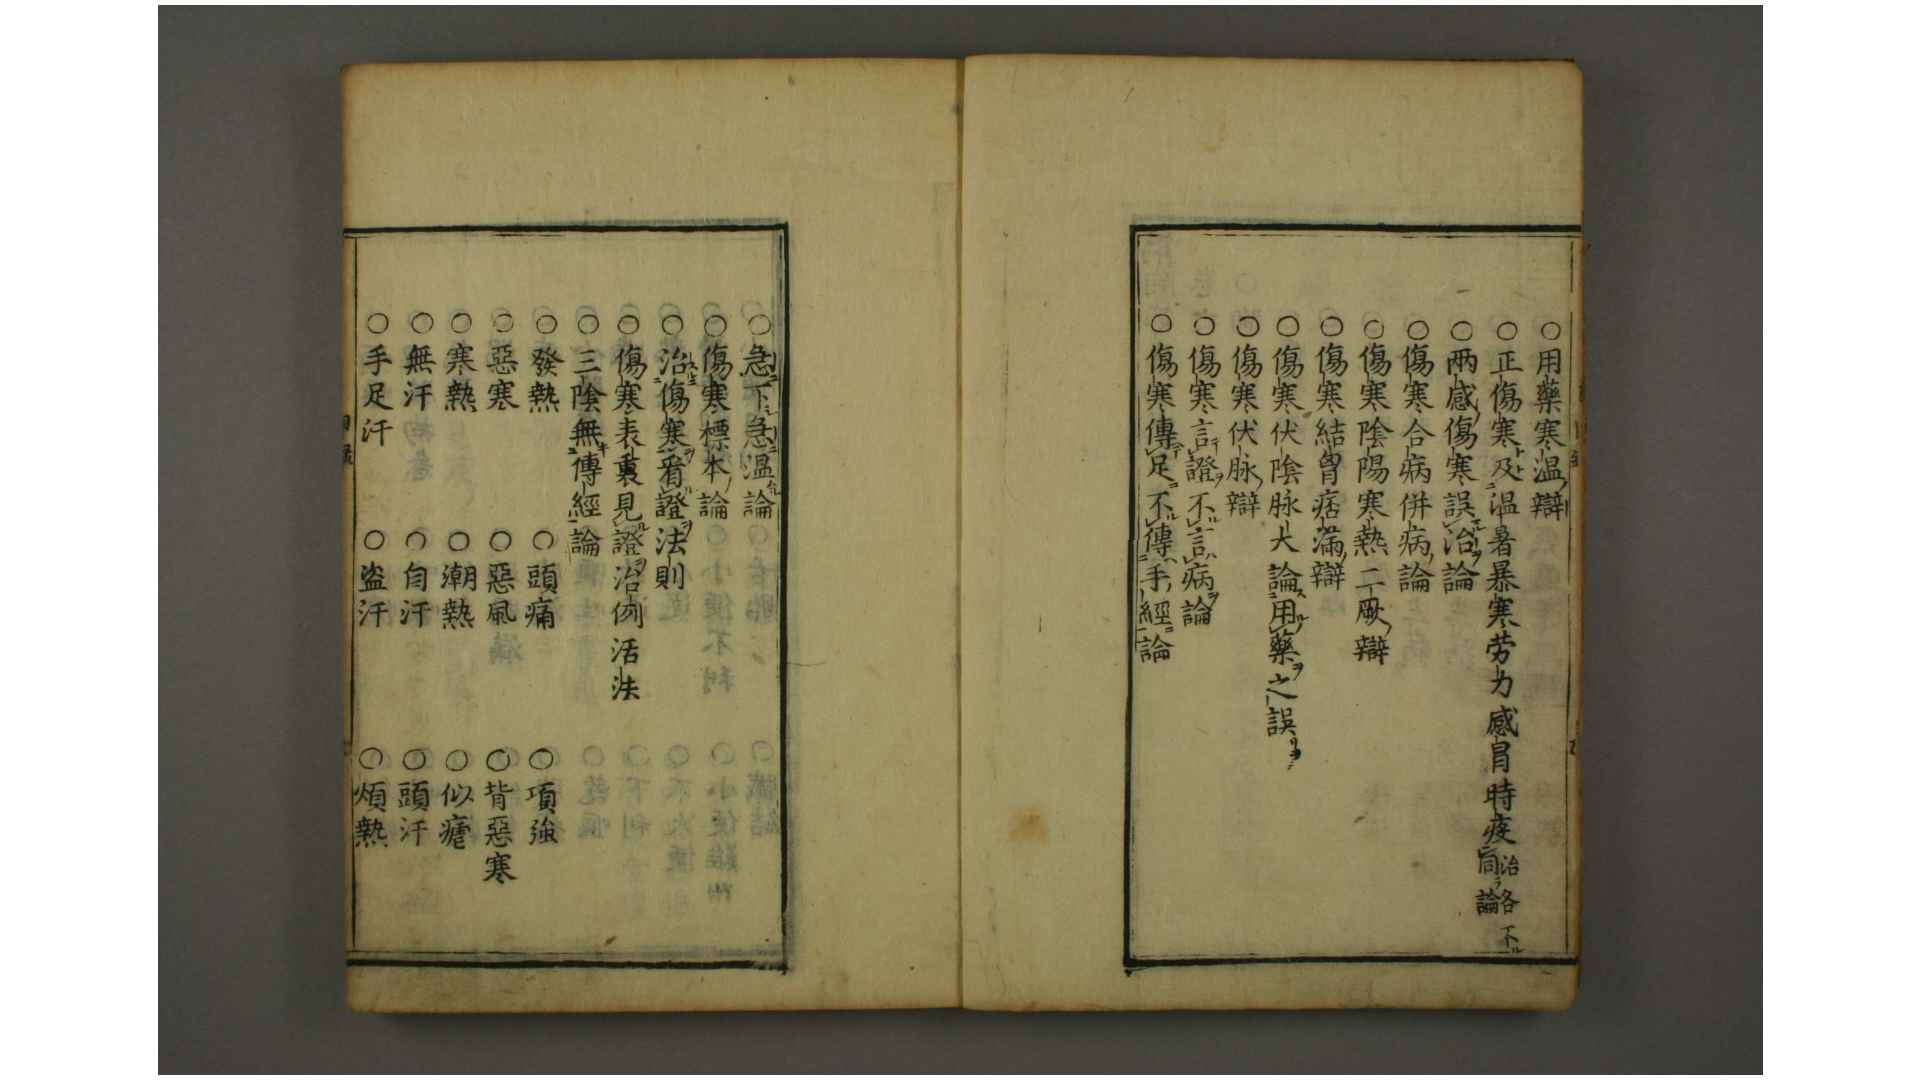 ○用藥寒温辯
○正傷寒及温暑暴寒劳力感冒時疫治各不同論
○兩感傷寒誤治論
○傷寒合病併病論
○傷寒陰陽寒熱二厥辯
○傷寒結胷痞滿辯
○傷寒伏陰脉大論用藥之誤
○傷寒伏脉辯
○傷寒言證不言病論
○傷寒傳足不傳手經論
○急下急温論
○傷寒標本論
○治傷寒看證法則
○傷寒表裏見證治例活法
○三陰無傳經論
○發熱 ○頭痛 ○項強
○惡寒 ○惡風 ○背惡寒
○寒熱 ○潮熱 ○似瘧
○無汗 ○自汗 ○頭汗
○手足汗 ○盗汗 ○煩熱
目録